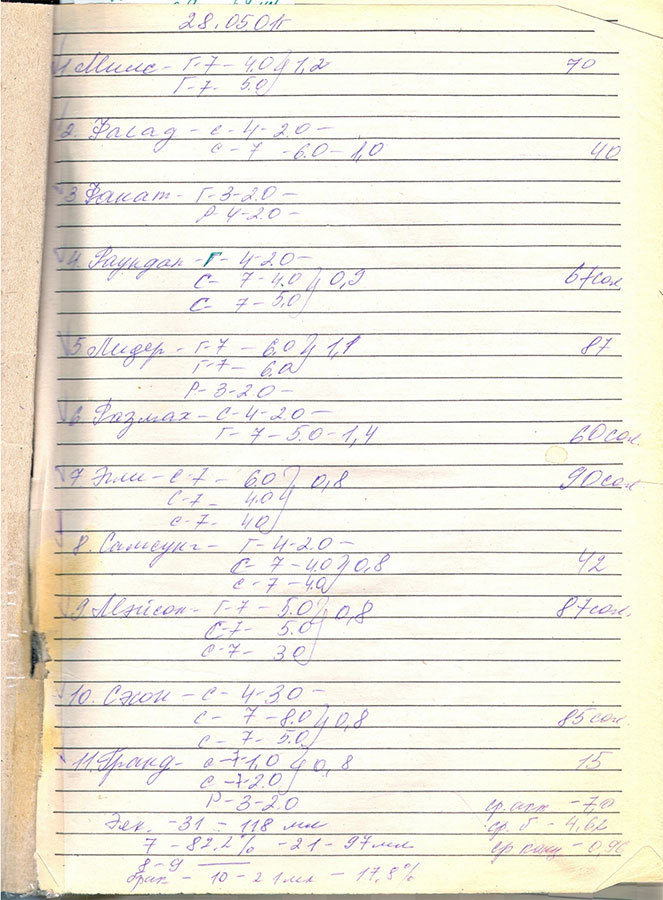 28.05.01г
1 Милс - Г-7 - 4.0 } 1,2 70
Г-7 5.0
2. Фасад - с - 4 - 2.0 -
с - 7 - 6.0 - 1,0 40
3 Факат - Г - 3 - 2.0 -
Р - 4 - 2.0 -
4. Раундап - Г - 4 - 2.0 -
С - 7 - 4.0 } 0,9 67 сол
С - 7 - 5.0
5 Лидер - Г-7 - 6.0 } 1,1 87
Г-7 - 6.0
Р - 3 - 2.0 -
6 Размах - С - 4 - 2.0 -
Г - 7 - 5.0 - 1,4 60 сол.
7 Эгли - С-7 - 6.0 } 0,8 90 сол
С-7 - 4.0
с-7 - 4.0
8. Самсунг - Г - 4 - 2.0 -
С - 7 - 4.0 } 0,8 42
с - 7 - 4.0
9 Мэйсон - Г-7 - 5.0 } 0,8 87 сол.
С-7 - 5.0
С-7 - 3.0
10. Сэхон - С - 4 - 3.0 -
С - 7 - 8.0 } 0,8 85 сол
С - 7 - 5.0
11. Гранд - С - 7 - 1.0 } 0,8 15
С - 7 - 2.0
Р - 3 - 2.0 ср. акт - 7,0
Эяк. - 31 - 118 мл ср. б - 4,62
7 - 82,2% - 21 - 97 мл ср конц - 0,96
8 - 9 —
брак - 10 - 21 мл - 17,8%